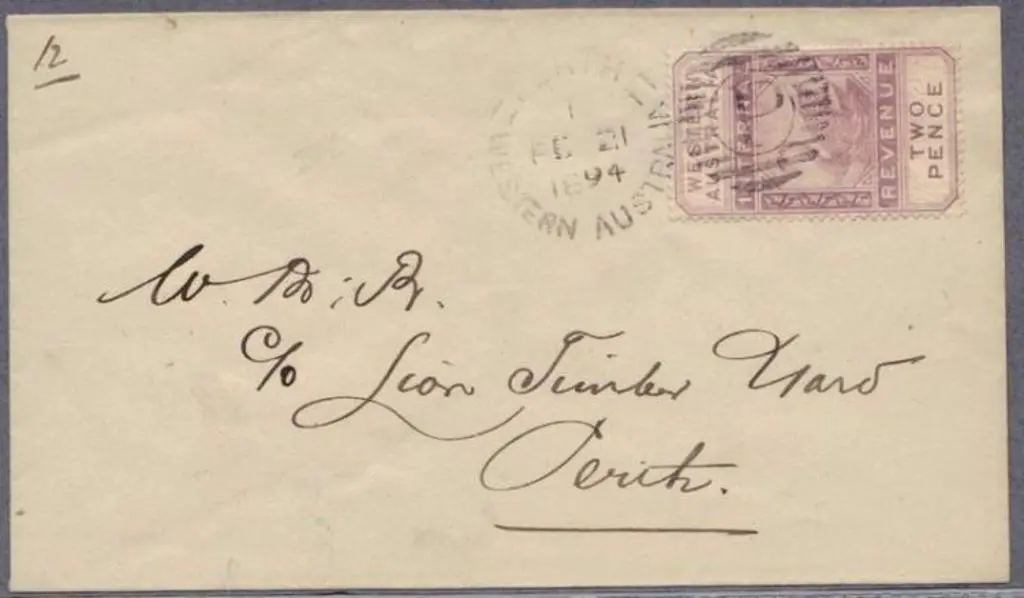 12
PERTH
1
FE 21
1894
WESTERN AUSTRALIA
WESTERN
AUSTRALIA
INTERNAL
REVENUE
TWO
PENCE
C/o Lion Timber Yard
Perth.